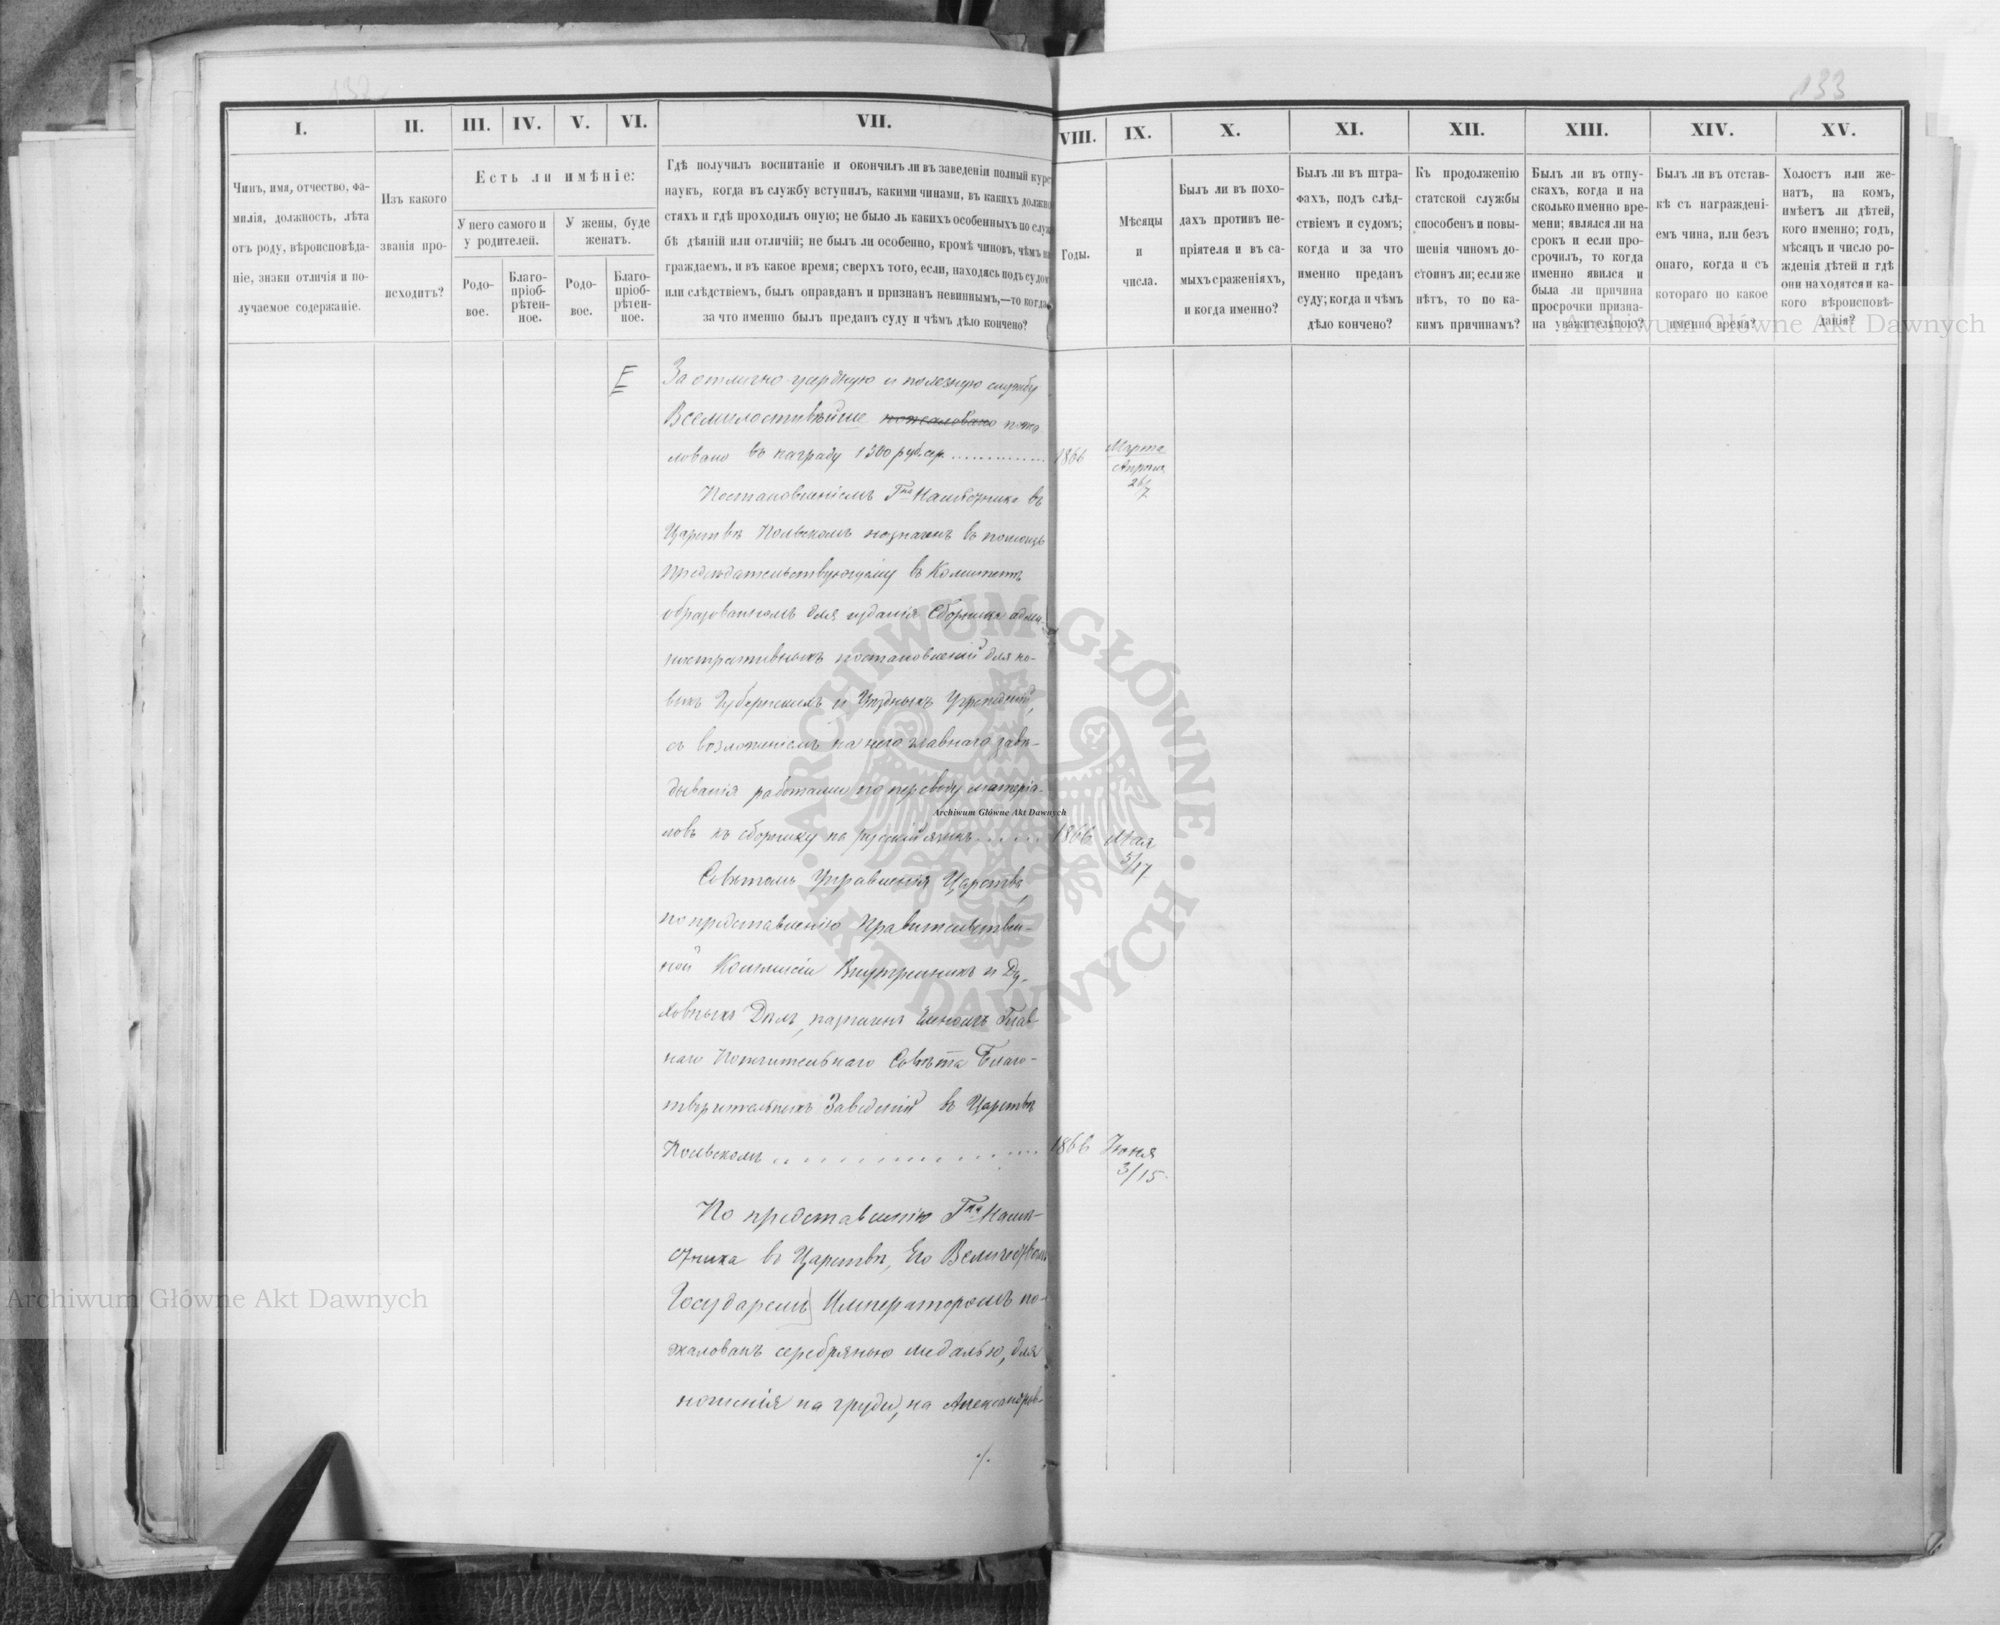 132
133
I.
II.
III.
IV.
V.
VI.
VII.
VIII.
IX.
X.
XI.
XII.
XIII.
XIV.
XV.
Чинъ, имя, отчество, фа-
милія, должность, лѣта
отъ роду, вѣроисповѣда-
ніе, знаки отличія и по-
лучаемое содержаніе.
Изъ какого
званія про-
исходитъ?
Есть ли имѣніе:
У него самого и
у родителей.
У жены, буде
женатъ.
Родо-
вое.
Благо-
пріоб-
рѣтен-
ное.
Родо-
вое.
Благо-
пріоб-
рѣтен-
ное.
Гдѣ получилъ воспитаніе и окончилъ ли въ заведеніи полный курс
наукъ, когда въ службу вступилъ, какими чинами, въ какихъ должно
стяхъ и гдѣ проходилъ оную; не было ль какихъ особенныхъ по служ
бѣ дѣяній или отличій; не былъ ли особенно, кромѣ чиновъ, чѣмъ на
граждаемъ, и въ какое время; сверхъ того, если, находясь подъ судом
или слѣдствіемъ, былъ оправданъ и признанъ невиннымъ,—то когда,
за что именно былъ преданъ суду и чѣмъ дѣло кончено?
Годы.
Мѣсяцы
и
числа.
Былъ ли въ похо-
дахъ противъ не-
пріятеля и въ са-
мыхъ сраженіяхъ,
и когда именно?
Былъ ли въ штра-
фахъ, подъ слѣд-
ствіемъ и судомъ;
когда и за что
именно преданъ
суду; когда и чѣмъ
дѣло кончено?
Къ продолженію
статской службы
способенъ и повы-
шенія чиномъ до-
стоинъ ли; если же
нѣтъ, то по ка-
кимъ причинамъ?
Былъ ли въ отпу-
скахъ, когда и на
сколько именно вре-
мени; являлся ли на
срокъ и если про-
срочилъ, то когда
именно явился и
была ли причина
просрочки призна-
на уважительною?
Былъ ли въ отстав-
кѣ съ награждені-
емъ чина, или безъ
онаго, когда и съ
котораго по какое
именно время?
Холостъ или же-
натъ, на комъ,
имѣетъ ли дѣтей,
кого именно; годъ,
мѣсяцъ и число ро-
жденія дѣтей и гдѣ
они находятся и ка-
кого вѣроисповѣ-
данія?
За отлично-усердную и полезную службу
Всемилостивѣйше пожаловано пожа
ловано въ награду 1500 руб. сер. .............. 1866 Марта
Апрѣля
26/7
Постановленіемъ Гна Намѣстника въ
Царствѣ Польскомъ назначенъ въ помощь
Предсѣдательствующему въ Комитетѣ
образованномъ для изданія Сборника адми-
нистративныхъ постановленій для но-
выхъ Губернскихъ и Уѣздныхъ Учрежденій,
съ возложеніемъ на него главнаго завѣ-
дыванія работами по переводу матеріа-
ловъ къ сборнику на русскій языкъ...... 1866 Мая
5/17
Совѣтомъ Управленія Царства,
по представленію Правительствен-
ной Коммисіи Внутреннихъ и Ду-
ховныхъ Дѣлъ, назначенъ Членомъ Глав-
наго Попечительнаго Совѣта Благо-
творительныхъ Заведеній въ Царствѣ
Польскомъ .............. 1866 Іюня
3/15
По представленію Гна Намѣ-
стника въ Царствѣ, Его Величествомъ
Государемъ Императоромъ по-
жалованъ серебряною медалью, для
ношенія на груди, на Александров-
./.
Archiwum Główne Akt Dawnych
Archiwum Główne Akt Dawnych
Archiwum Główne Akt Dawnych
ARCHIWUM GŁÓWNE
AKT DAWNYCH